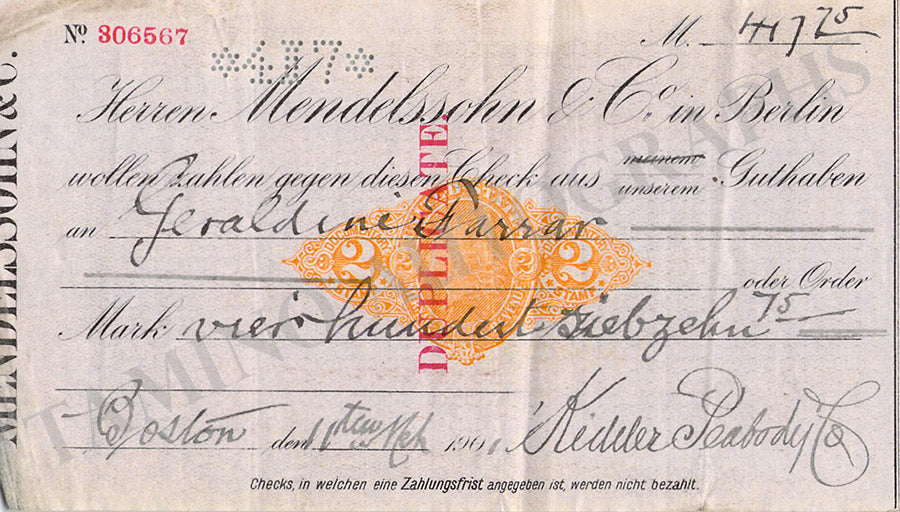 Nº 306567
*417*
M. 417 75
Herren Mendelssohn & Co. in Berlin
wollen zahlen gegen diesen Check aus meinem unserem Guthaben
an Geraldine Farrar
oder Order
Mark vier hundert siebzehn 75
Boston den 11ten 190 Kidder Peabody & Co
Checks, in welchen eine Zahlungsfrist angegeben ist, werden nicht bezahlt.
MENDELSSOHN & C.
DUPLIKATE.
2 DOCUMENTARY 2 2 STAMP 2
TAMINO AUTOGRAPHS